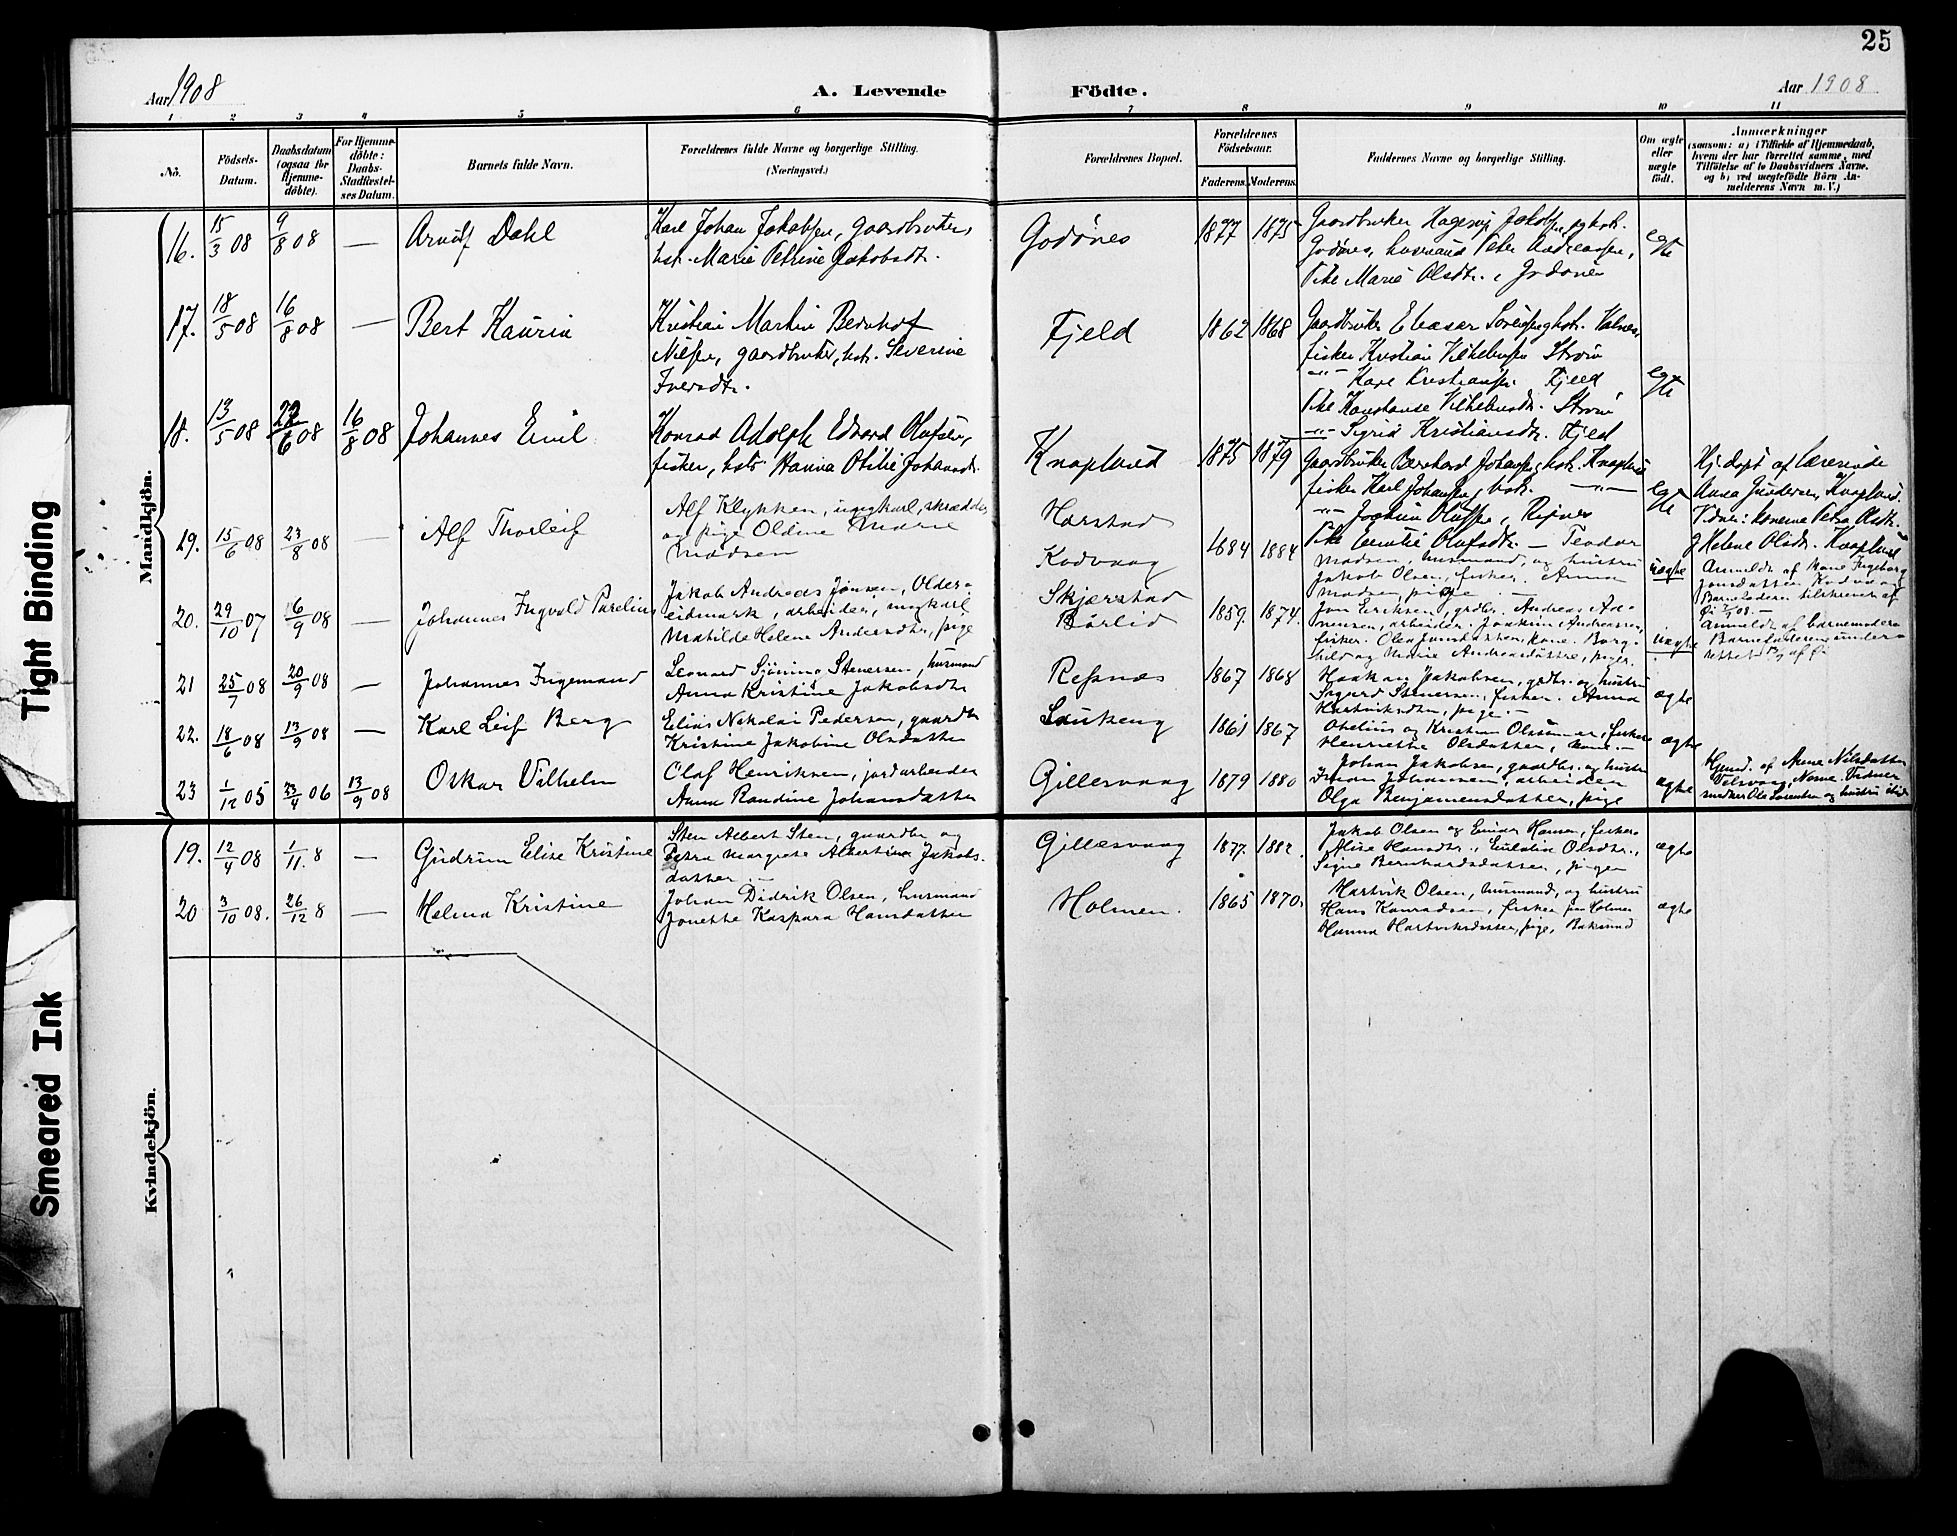 25
Aar 1908
A. Levende Födte.
Aar 1908
1 2 3 4 5 6 7 8 9 10 11
No.
Födsels-Datum.
Daabsdatum (ogsaa for Hjemmedöbte).
For Hjemmedöbte: Daabs-Stadfæstelses Datum.
Barnets fulde Navn.
Forældrenes fulde Navne og borgerlige Stilling.
(Næringsvei.)
Forældrenes Bopæl.
Forældrenes Födselsaar.
Faderens. Moderens.
Faddernes Navne og borgerlige Stilling.
Om ægte eller uægte födt.
Anmærkninger
(saasom: a) i Tilfælde af Hjemmedaab,
hvem der har forrettet samme, med
Tilföielse af to Daabsvidners Navne.
og b) ved uægtefödte Börn An-
melderens Navn m. V.)
Mandkjön.
16. 15/3 08 9/8 08 — Arnulf Dahl
Karl Johan Jakobsen, gaardbruker,
hst. Marie Petrine Jakobsdt.
Godönes 1877 1875
Gaardbruker Hagerup Jakobsen og hst.
Godönes, husmand Peter Andreassen,
Pike Marie Olsdtr., Godönes
egte
17. 18/5 08 16/8 08 — Bert Kaurin
Kristian Martin Bernhof
Nilsen, gaardbruker, hst. Severine
Iversdtr.
Fjeld 1862 1868
Gaardbruker Eleasar Sörensen og hst. Valnes,
fisker Kristian Vilhelmsen Ström
-"- Karl Kristiansen Fjeld
Pike Konstanse Vilhelmsdtr. Ström
-"- Sigrid Kristiansdtr. Fjeld
egte
18. 13/5 08 22/6 08 16/8 08 Johannes Emil
Konrad Adolph Edvard Olufsen,
fisker, hst. Hanna Otilie Johansdt.
Knaplund 1875 1879
Gaardbruker Bernhard Johansen og hst. Knaplund
fisker Karl Johansen og hst. -"-
-"- Joakim Olufsen, Rejnes
Pike Emilie Olufsdtr. —
egte
Hj.döpt af lærerinde
Anna Gundersen, Knaplund.
Vidner: konerne Petra Olsdtr.
og Helene Olsdtr. Knaplund
19. 15/6 08 23/8 08 — Alf Thorleif
Alf Klykken, ungkarl, skrædder,
og pige Oldine Marie
Madsen
Harstad
Kodvaag
1884 1884
Teodor
Madsen, husmand, og hustru
Jakob Olsen, fisker. Anna
Madsen, pige. —
uægte
Anmeldt af kone Ingeborg
Jonsdatter Kodvaag
Barnefaderen tilskrevet af
20. 29/10 07 6/9 08 — Johannes Ingvald Parelius
Jakob Andreas Jonsen, Older-
eidmark, arbeider, ungkarl
Matilde Helene Andersdtr, pige
Skjerstad
Börlid
1859. 1874.
Jon Eriksen, grdbr. Andreas
arbeider. Joakim Andreassen,
fisker. Olea Jonsdatter, kone. Borg-
hild og Marie Andreasdatter, piger.
uægte
Anmeldt af barnemoderen
Barnefaderen under-
rettet
21 25/7 08 20/9 08 — Johannes Ingemand
Leonard Sjöning Stenersen, husmand
Anna Kristine Jakobsdtr
Resnes 1867 1868
Haakon Jakobsen, gdbr. og hustru
Sigurd Stenersen, fisker. Anna
Hartviksdtr, pige. —
ægte
22. 18/6 08 13/9 08 — Karl Leif Berg
Elias Nikolai Pedersen, gaardbr
Kristine Jakobine Olsdatter
Saukeng 1861 1867
Otelius og Kristian Olsönner, fiskere
Henriette Olsdatter, kone. —
ægte
23 1/12 05 23/4 06 13/9 08 Oskar Vilhelm
Olaf Henriksen, jordarbeider
Anna Randine Johansdatter
Gillesvaag 1879 1880
Johan Jakobsen, gaardbr. og hustru
Johan Johansen, arbeider
Olga Benjaminsdatter, pige
ægte
Hjemd. af Anna Nilsdatter
Kvindekjön.
19. 12/4 08 1/11. 8 — Gudrun Elise Kristine
Sten Albert Sten, gaardbr og
Petra Margrete Albertine Jakobs-
datter —
Gillesvaag 1877. 1882.
Jakob Olsen og Einar Hansen, fiskere
Alise Hansdtr., Eulalia Olsdtr.,
Signe Bernhardsdatter, piger
ægte
20 3/10 08. 26/12 8 — Helma Kristine
Johan Didrik Olsen, husmand
Jonette Kaspara Hansdatter
Holmen. 1865 1870.
Hartvik Olsen, husmand, og hustru
Hans Konradsen, fisker, fra Holmen
Hanna Hartviksdatter, pige, Baksund
ægte
Tight Binding
Smeared Ink